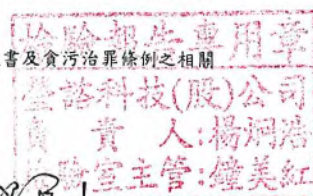 檢驗報告專用章
書及貪污治罪條例之相關
科技(股)公司
負責人:楊炯浩
室主管:鐘美紅